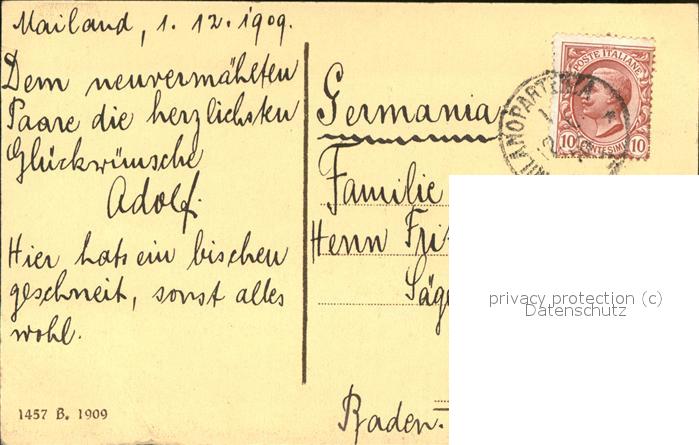 Mailand, 1. 12. 1909.
Dem neuvermählten
Paare die herzlichsten
Glückwünsche
Adolf.
Hier hats ein bischen
geschneit, sonst alles
wohl.
1457 B. 1909
POSTE ITALIANE
10 CENTESIMI 10
MILANO PARTENZA
Germania
Familie
Herrn Fri
Säge
Baden.
privacy protection (c)
Datenschutz